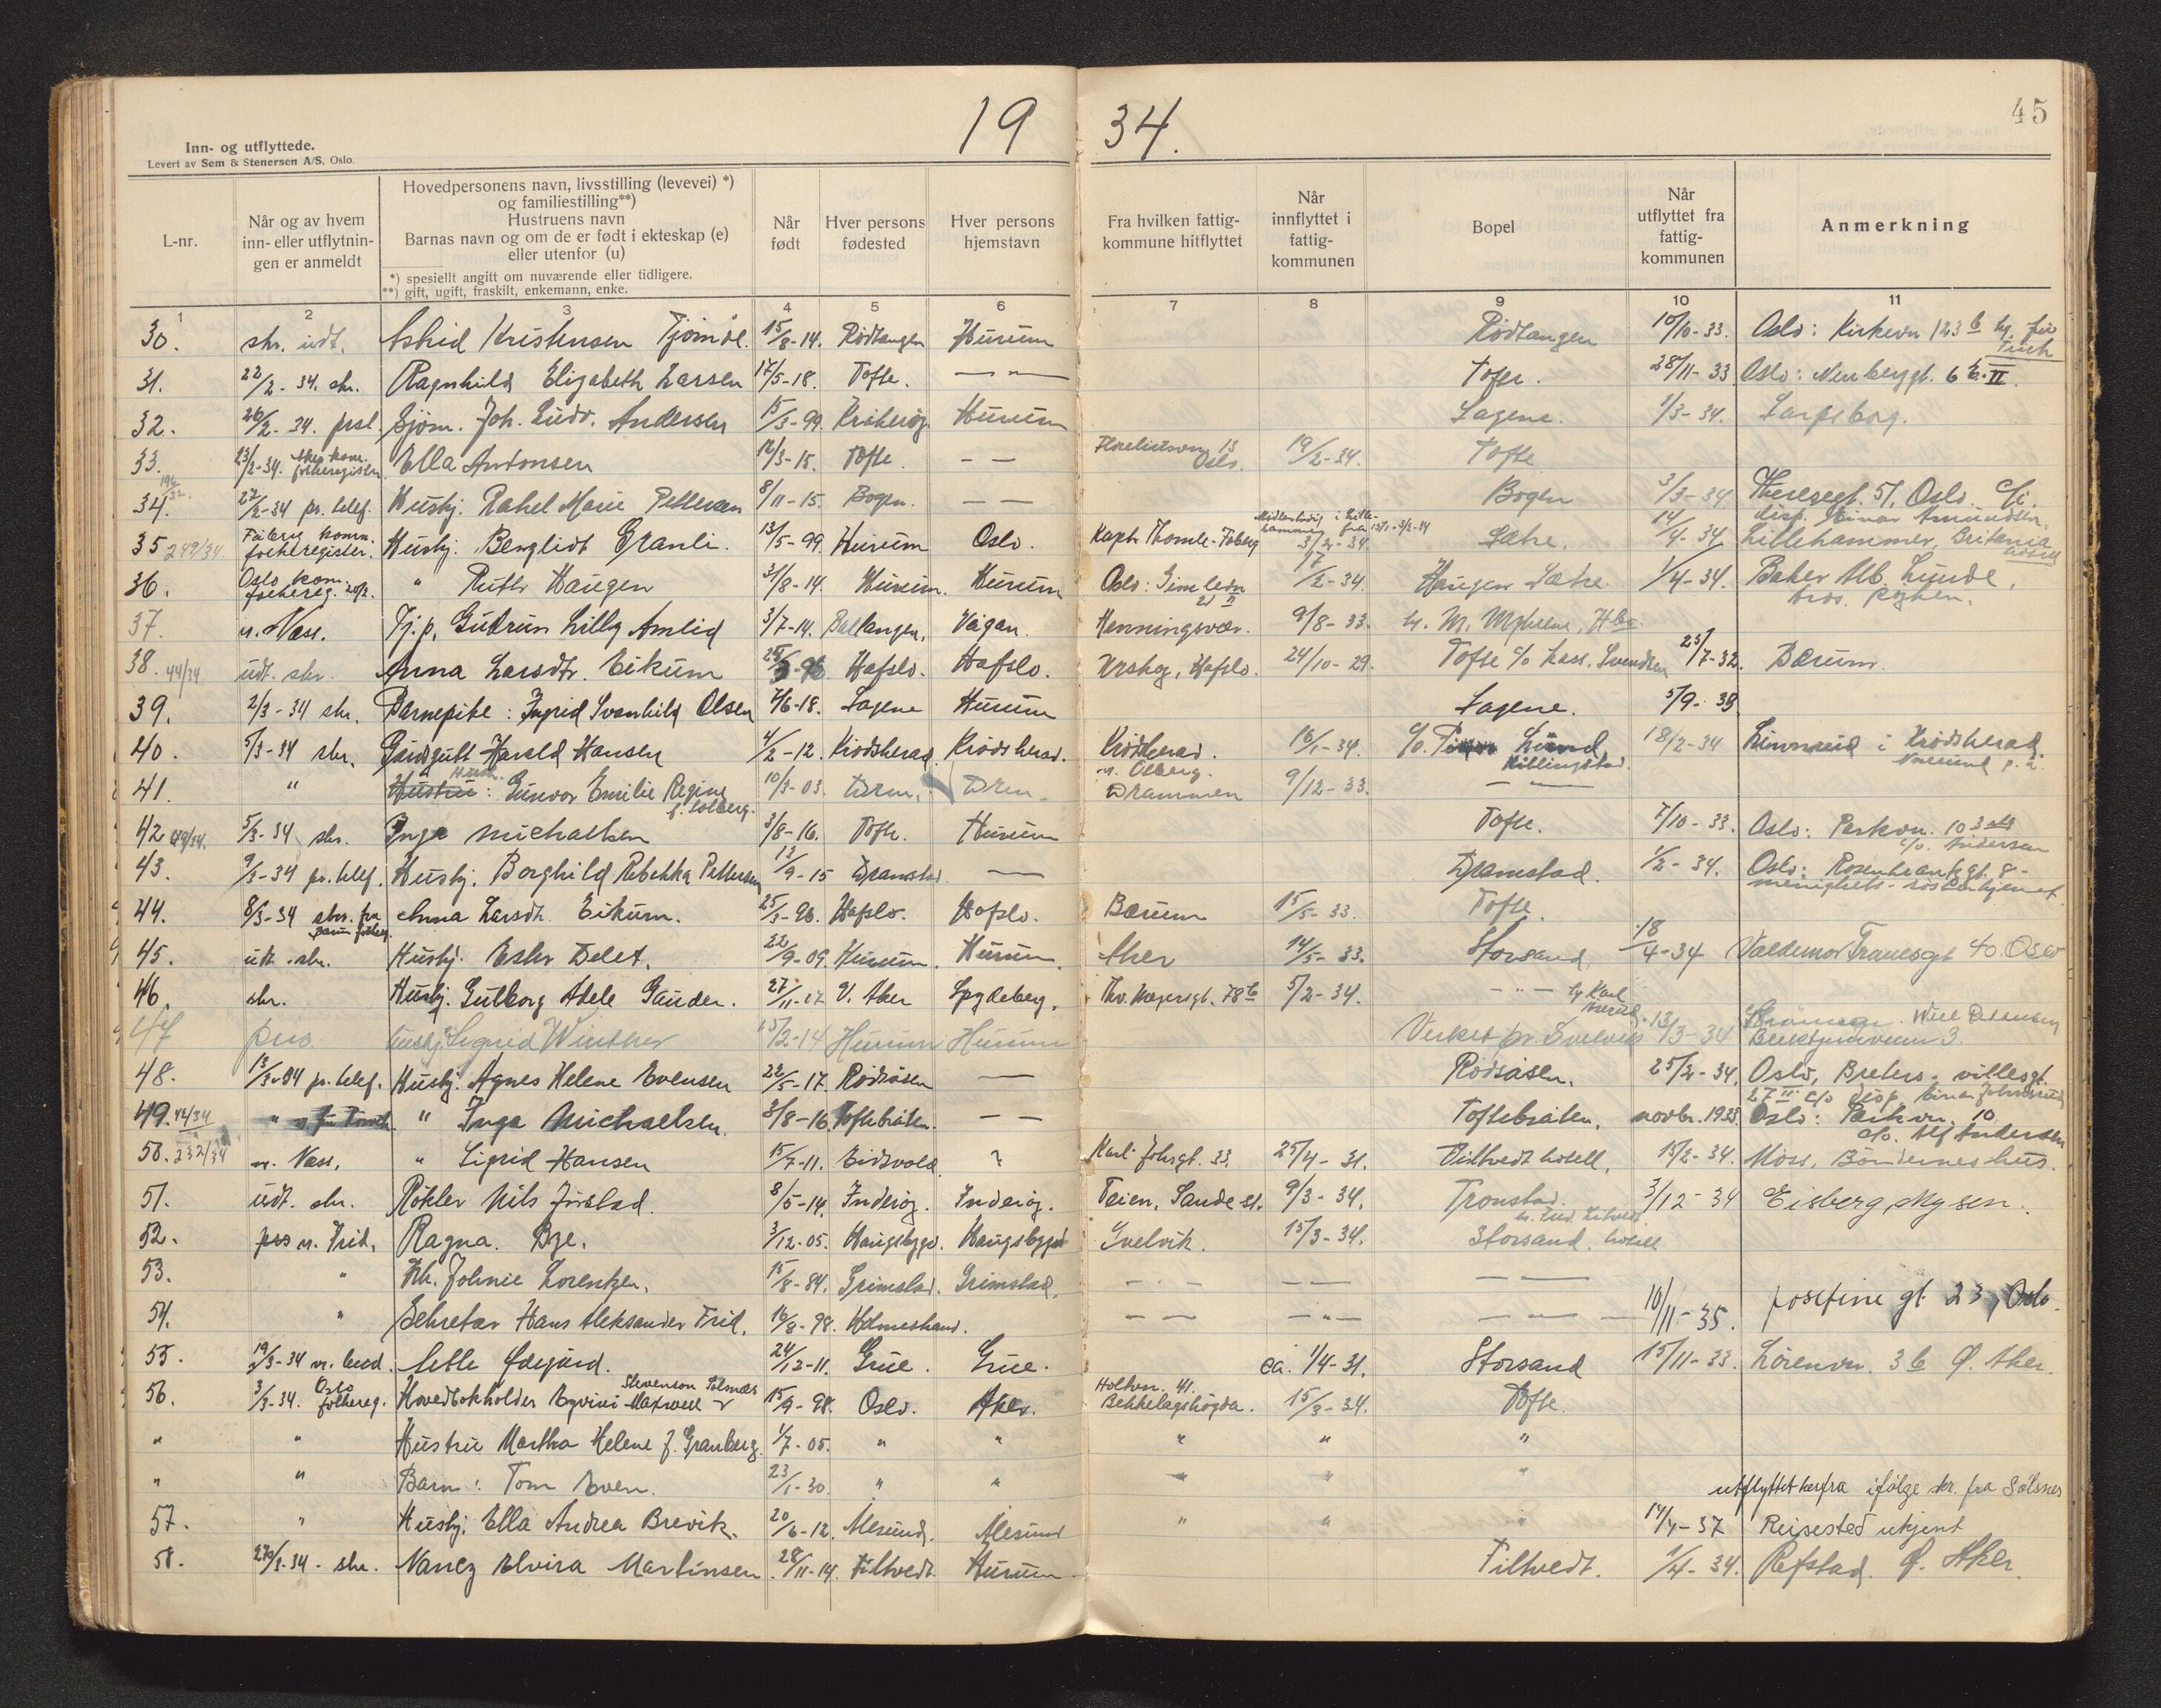 19 34.
45
Inn- og utflyttede.
Levert av Sem & Stenersen A/S, Oslo.
L-nr.
Når og av hvem inn- eller utflytnin-gen er anmeldt
Hovedpersonens navn, livsstilling (levevei) *)
og familiestilling**)
Hustruens navn
Barnas navn og om de er født i ekteskap (e)
eller utenfor (u)
*) spesiellt angitt om nuværende eller tidligere.
**) gift, ugift, fraskilt, enkemann, enke.
Når født
Hver persons fødested
Hver persons hjemstavn
Fra hvilken fattig-kommune hitflyttet
Når innflyttet i fattig-kommunen
Bopel
Når utflyttet fra fattig-kommunen
Anmerkning
1 2 3 4 5 6 7 8 9 10 11
30. skr. udt. Astrid Kristensen 15/8-14. Rødtangen Hurum Rødtangen 10/10-33. Oslo: Kirkevn 123 b
31. 22/2-34. skr. Ragnhild Elisabeth Larsen 17/5-18. Tofte. — " — Tofte. 28/11-33 Oslo: Neuberggt. 6 b. II.
32. 26/2-34. Sjøm. Joh. Ludv. Andersen 15/3-99. Hurum Sagene. 1/3-34. Sarpsborg.
33. 23/2-34. Aker kom. folkeregister Ella Antonsen 12/3-15. Tofte. — — 13 Oslo. 19/2-34. Tofte
34. 27/2-34 pr. telef. Hushj. Rakel Marie Pettersen 8/11-15. Bogen. — — Bogen 3/3-34 Theresegt. 51, Oslo. c/o disp. Einar Amundsen.
35 249/34 Fåberg komm. folkeregister. Hushj. Bergliot Granli. 13/5-99. Hurum Oslo. Kapt. Thomle. Fåberg 3/2-34. Sætre. 14/4-34 Lillehammer, Britania hotell
36. Oslo kom. folkereg. " Ruth Haugen 31/8-14. Hurum. Hurum Oslo: 1/2-34. Haugen Sætre. 1/4-34. Baker Lunde, Røyken.
37. n. Næss. Tj.p. Gudrun Lilly Amlid 3/7-14. Ballangen. Vågan. Henningsvær. 9/8-33.
38. 44/34 udt. skr. Anna Larsdtr. Eikum Hafslo. Hafslo. Hafslo. 24/10-29. Tofte c/o Svendsen 25/7-32. Bærum.
39. 2/3-34 skr. Barnepike: Ingrid Svanhild Olsen 7/6-18. Sagene Hurum Sagene. 5/9-33
40. 5/3-34 skr. Gårdsgutt Harald Hansen 4/2-12. Krødsherad. Krødsherad. Krødsherad. 16/1-34. c/o Lund, Killingstad. 18/2-34 i Krødsherad.
41. " Hustru: Gunvor Emilie Regine f. Solberg. 10/3-03. Drm. Drm. n. Olberg. Drammen 9/12-33. — —
42 49/34. 5/3-34 skr. Inga Michaelsen 3/8-16. Tofte. Hurum Tofte. 7/10-33. Oslo: Parkvn. 10 c/o. Andersen
43. 9/3-34 pr. telef. Hushj. Borghild Rebekka Pettersen 13/9-15 Dramstad. — Dramstad. 1/2-34. Oslo: Rosenkrantzgt. 8 - menighets-søsterhjemet.
44. 8/3-34 skr. fra Bærum folkereg. Anna Larsdtr. Eikum. 25/3-96. Hafslo. Hafslo. Bærum 15/5-33. Tofte.
45. udt. skr. Hushj. Ester Delet. 22/9-09. Hurum. Hurum. Aker 14/5-33. Storsand 18/4-34 Valdemar Tranesgt 40 Oslo
46. skr. Hushj. Gulborg Adele Gauden. 27/11-17 V. Aker Spydeberg. Thv. Meyersgt. 78 b 5/2-34. — " —
47 hushj. Sigrid Winther 15/2-14 Hurum Hurum Verket pr. Svelvik 13/3-34
48. 13/3-34 pr. telef. Hushj. Agnes Helene Evensen 22/5-17. Rødsåsen — Rødsåsen. 25/2-34. Oslo, villagt. 27 II c/o disp.
49. 42/34 " Inga Michaelsen 3/8-16. Toftebråten. — — Toftebråten. novbr. 1933. Oslo: Parkvn. 10 c/o. Alf Andersen
50. 232/34 n. Næss. " Sigrid Hansen 15/7-11. Eidsvold. ? Karl Johsgt. 33. 25/4-31. Tiltvedt hotell. 15/2-34. Moss, Bøndernes hus.
51. udt. skr. Røkter Nils Jørstad. 8/5-14. Inderøy. Inderøy. Teien, Sande st. 9/3-34. Tronstad. 3/12-34 Eisberg, Mysen.
52. n. Frid. Ragna. Bye. 3/12-05. Haugsbygd. Haugsbygd Svelvik. 15/3-34. Storsand. hotell
53. " Johnie Lorentzen. 15/8-84. Grimstad. Grimstad. — — — — — —
54. " Sekretær Hans Aleksander Frid. 16/8-98. Holmestrand. — — — " — — " — 10/11-35. Josefine gt 23, Oslo.
55. 19/3-34 Ødegård. 24/12-11. Grue. Grue. ca. 1/4-31. Storsand 15/11-33. Lørenvn. 36 Ø. Aker.
56. 3/3-34. Oslo folkereg. Hovedbokholder Maxwell Stevenson Sølsnes 15/9-98. Oslo. Aker. Holtvn. 41. Bekkelagshøgda. 15/3-34. Tofte
" " Hustru Martha Helene f. Granberg. 1/7-05. " " " " "
" " Barn: Tom Even. 23/1-30. " " " " "
utflyttet herfra ifølge skr. fra Sølsnes
57. " Hushj. Ella Andrea Brevik. 20/6-12. Ålesund. Ålesund " " " 14/4-37 Reisested ukjent
58. skr. Nancy Elvira Martinsen. 28/11-14. Tiltvedt. Hurum Tiltvedt. 1/4-34. Refstad. Ø. Aker.